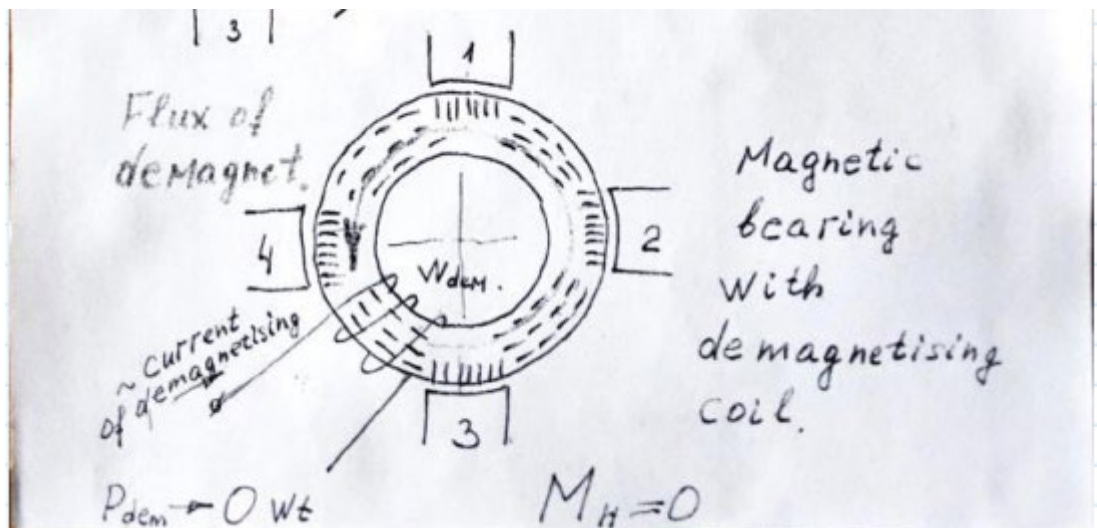 3
1
Flux of
demagnet.
4
2
Wdem.
3
~ current
of demagnetising
Magnetic
bearing
With
demagnetising
coil.
Pdem → 0 Wt
MH = 0